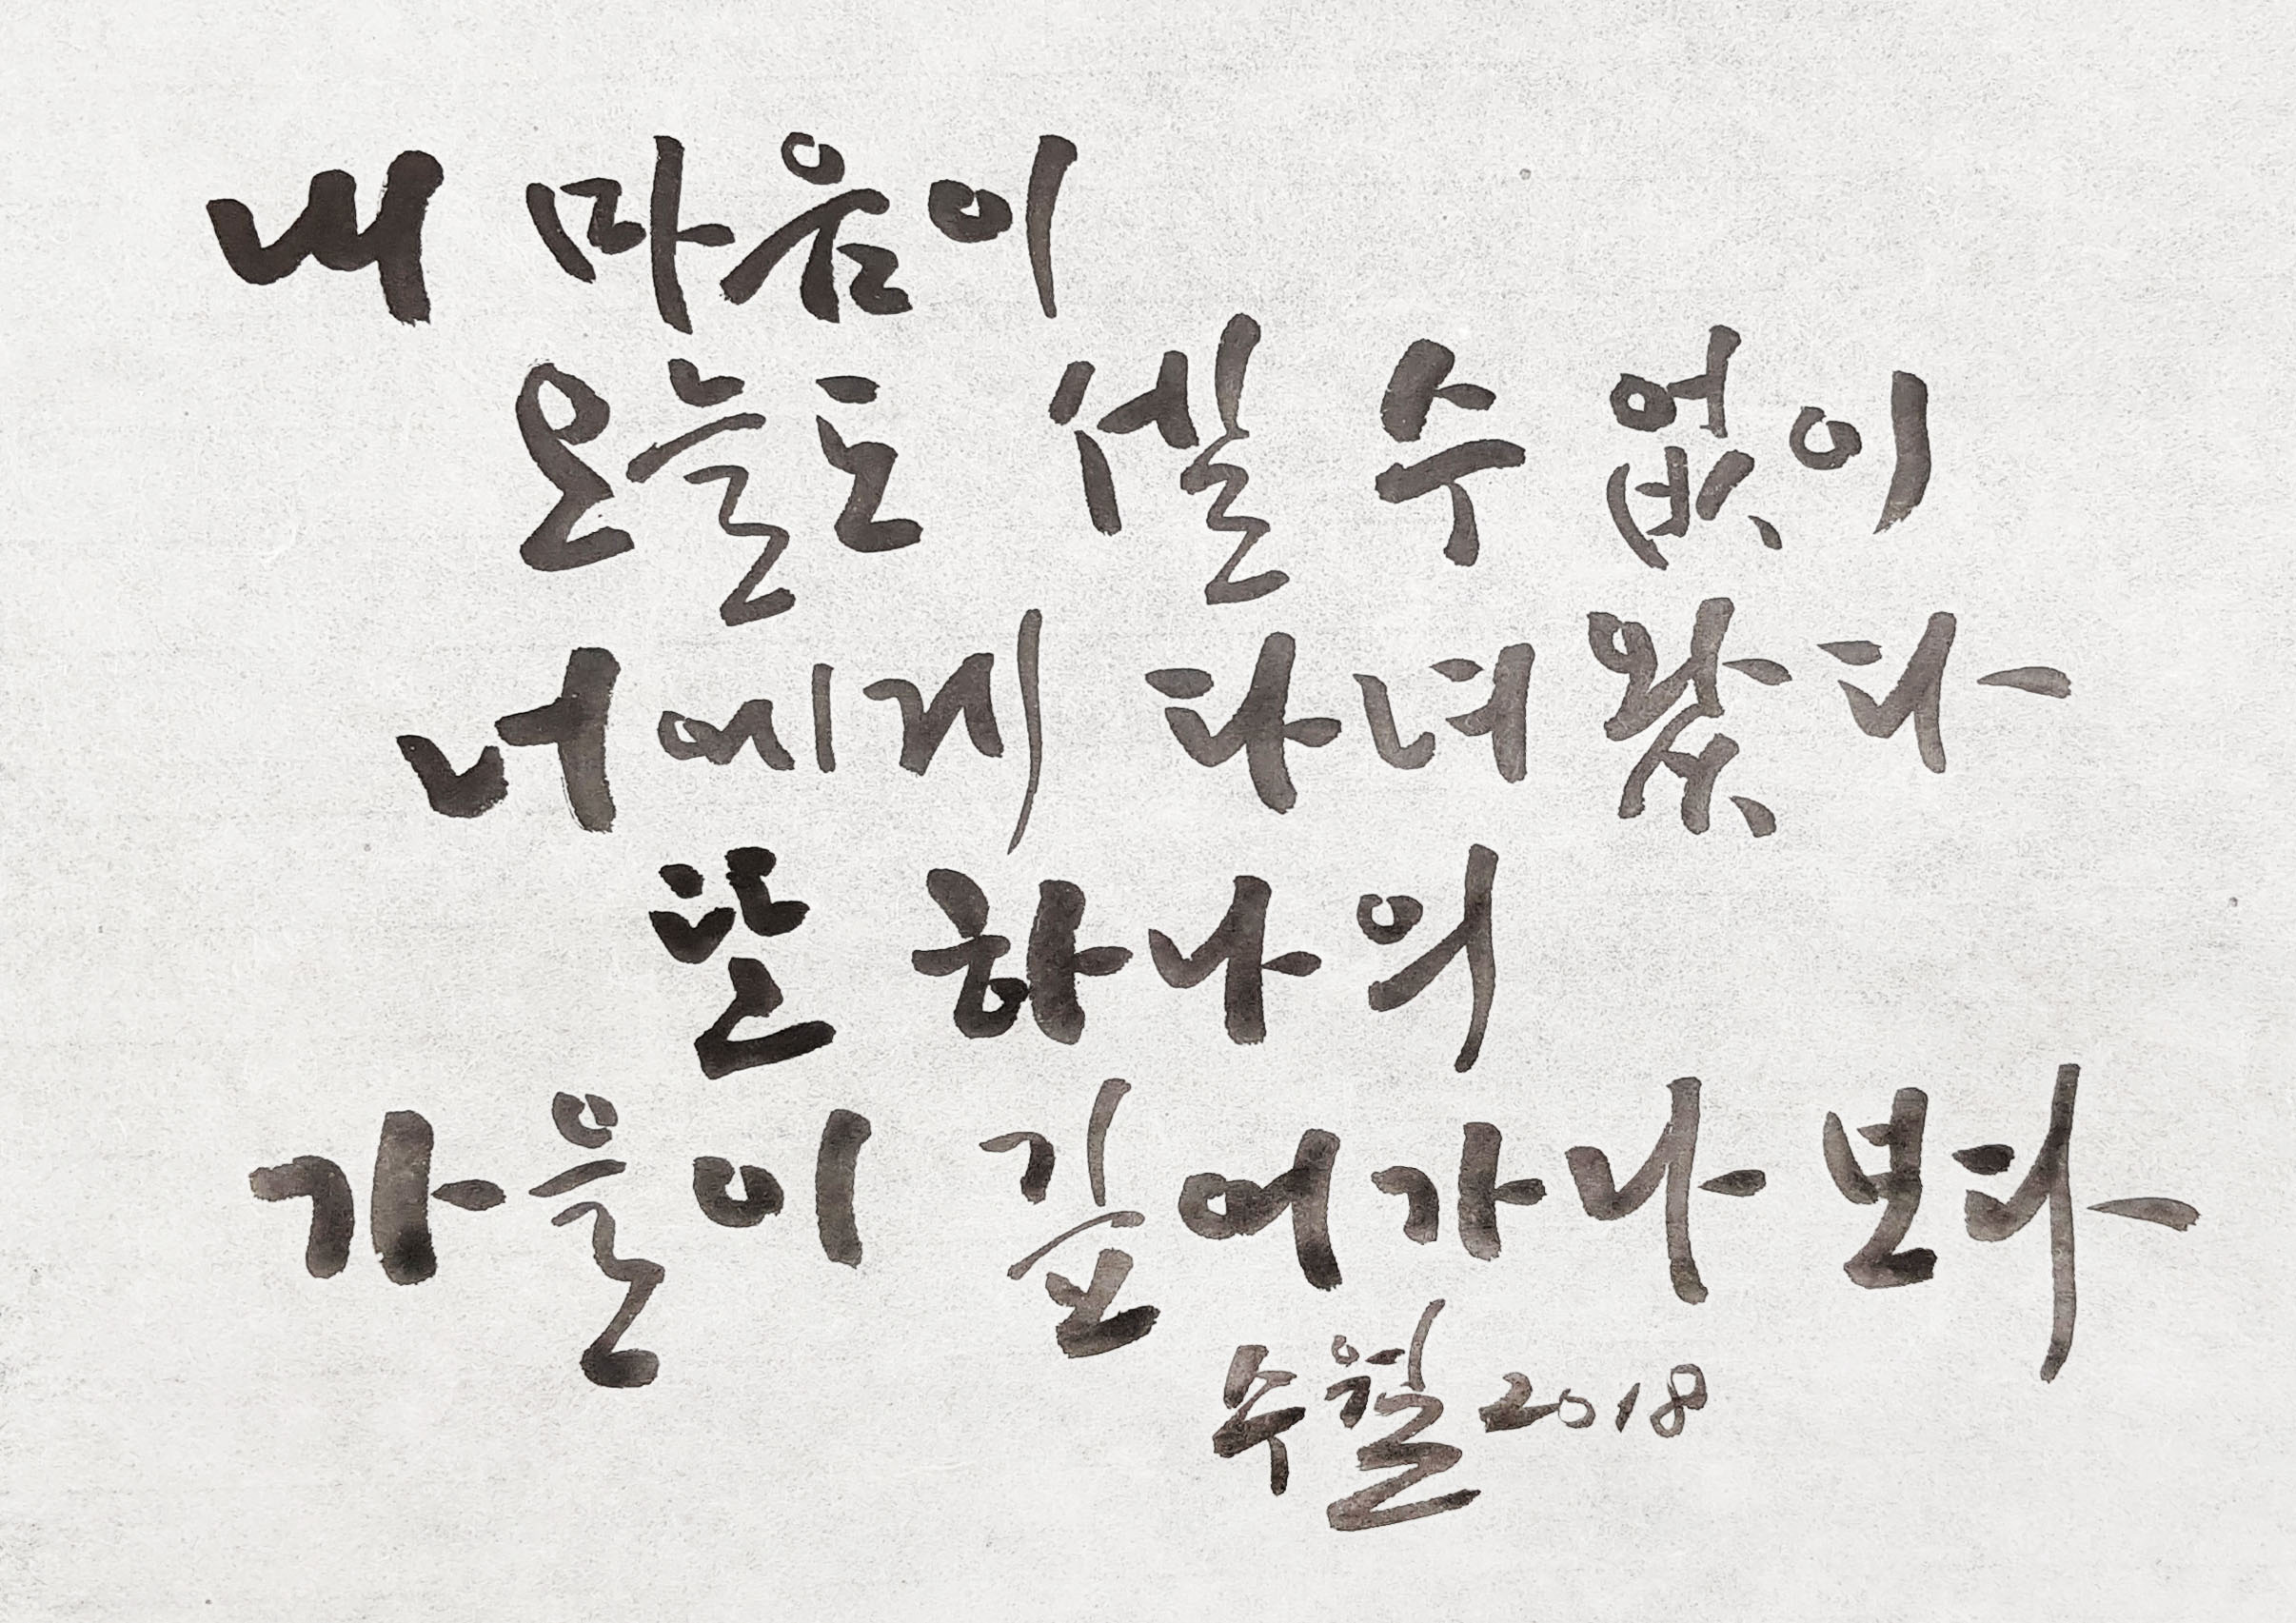 내 마음이
오늘도 셀 수 없이
너에게 다녀왔다
또 하나의
가을이 깊어가나 보다
수월 2018